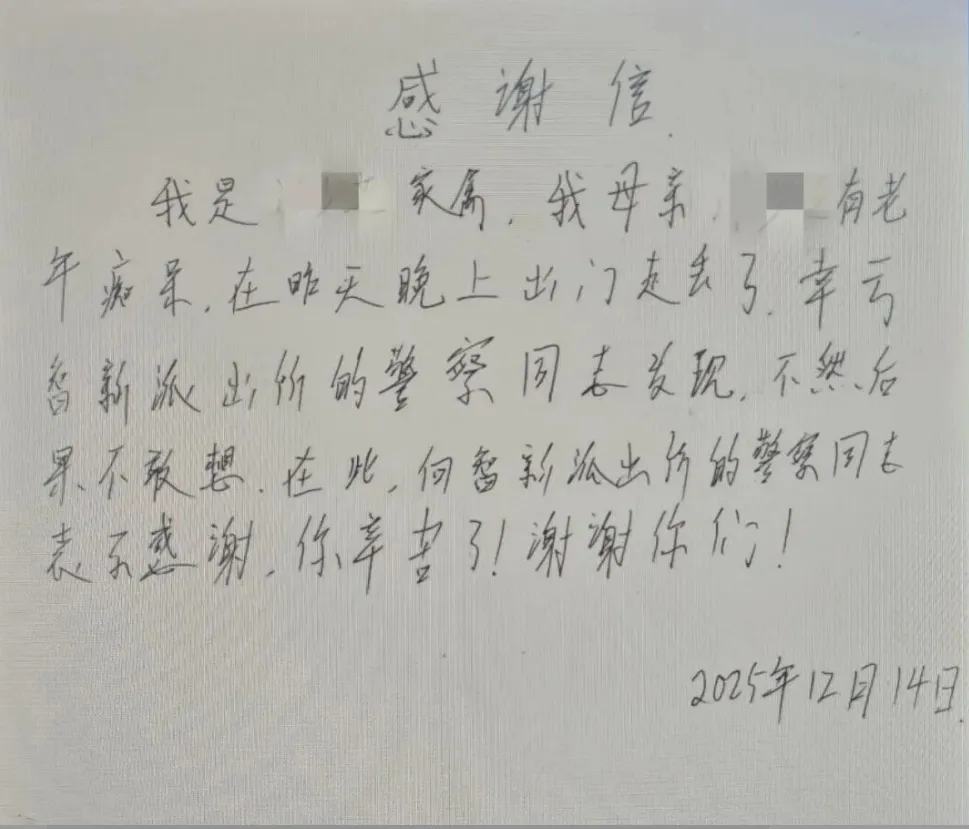 感谢信.
我是 家属，我母亲， 有老
年痴呆，在昨天晚上出门走丢了，幸亏
智新派出所的警察同志发现，不然后
果不敢想，在此，向智新派出所的警察同志
表示感谢，你辛苦了！谢谢你们！
2025年12月14日.